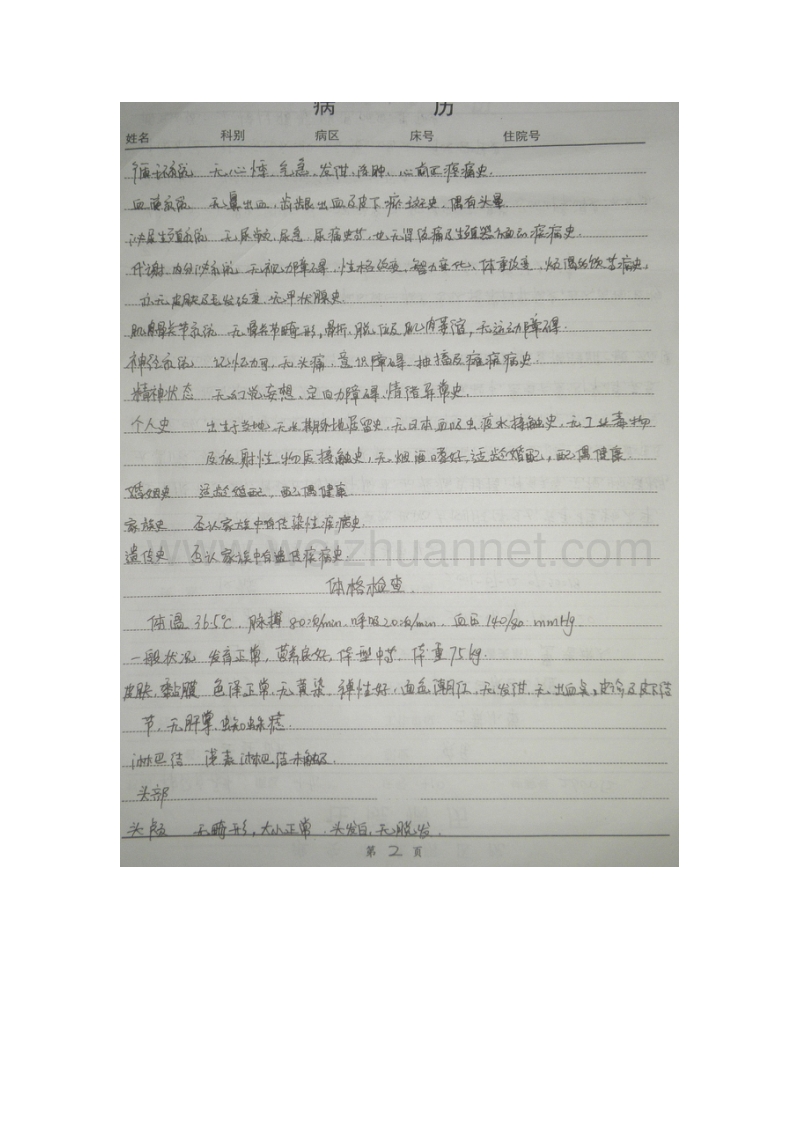 病 历
姓名 科别 病区 床号 住院号
循环系统 无心悸、气急、发绀、浮肿、心前区疼痛史。
血液系统 无鼻出血、齿龈出血及皮下瘀斑史，偶有头晕
泌尿生殖系统 无尿频、尿急、尿痛史等，也无肾绞痛及生殖器方面的疾病史。
代谢、内分泌系统 无视力障碍、性格改变、智力变化、体重改变、烦渴多饮等病史，
亦无皮肤及毛发改变，无甲状腺史。
肌肉骨关节系统 无骨关节畸形，骨折、脱位及肌肉萎缩，无运动障碍.
神经系统 记忆力可，无头痛，意识障碍、抽搐及瘫痪病史。
精神状态 无幻觉妄想、定向力障碍、情绪异常史。
个人史 出生于当地，无长期外地居留史，无日本血吸虫疫水接触史，无工业毒物
及放射性物质接触史，无烟酒嗜好，适龄婚配，配偶健康。
婚姻史 适龄婚配，配偶健康
家族史 否认家族中有传染性疾病史.
遗传史 否认家族中有遗传疾病史.
www.weizhuannet.com
体格检查.
体温 36.5℃. 脉搏 80次/min. 呼吸 20次/min. 血压 140/80 mmHg.
一般状况 发育正常，营养良好，体型中等，体重75kg.
皮肤、黏膜 色泽正常，无黄染 弹性好，面色潮红，无发绀，无出血点，皮疹及皮下结
节，无肝掌、蜘蛛痣.
淋巴结 浅表淋巴结未触及.
头部
头颅 无畸形，大小正常 头发白，无脱发.
第 2 页